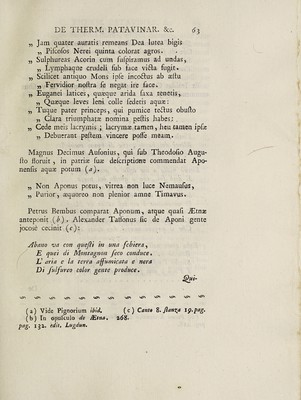 DE THERM. PATAVINAR. &c. 63
„ Jam quater auratis remeans Dea lutea bigis
„ Piscosos Nerei quinta colorat agros.
„ Sulphureas Acorin cum suspiramus ad undas,
„ Lymphaque crudeli sub face victa fugit.
„ Scilicet antiquo Mons ipse incoctus ab æstu
„ Fervidior nostra se negat ire face.
„ Euganei latices, quæque arida saxa tenetis,
„ Quæque leves leni colle sederis aquæ:
„ Tuque pater princeps, qui pumice tectus obusto
„ Clara triumphatæ nomina pestis habes:
„ Cede meis lacrymis; lacrymæ tamen, heu tamen ipsæ
„ Debuerant pestem vincere posse meam.
Magnus Decimus Ausonius, qui sub Theodosio Augu-
sto floruit, in patriæ suæ descriptione commendat Apo-
nensis aquæ potum (a).
„ Non Aponus potus, vitrea non luce Nemausus,
„ Purior, æquoreo non plenior amne Timavus.
Petrus Bembus comparat Aponum, atque quasi Ætnæ
anteponit (b). Alexander Tassonus sic de Aponi gente
jocosè cecinit (c):
Abano va con questi in una schiera,
E quei di Montagnon seco conduce.
L'aria e la terra affumicata e nera
Di sulfureo color gente produce.
Qui-
(a) Vide Pignorium ibid. (c) Canto 8. stanza 19. pag.
(b) In opusculo de Ætna. 268.
pag. 132. edit. Lugdun.